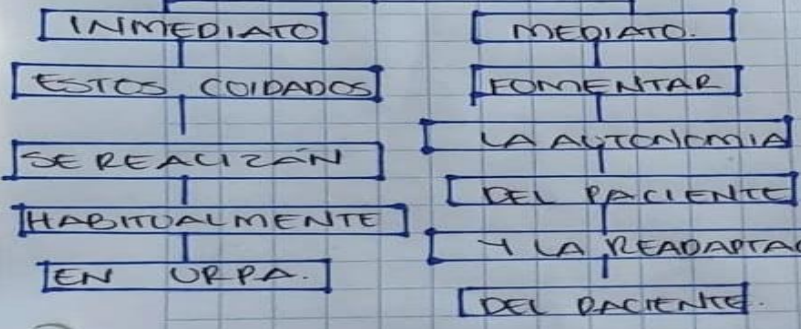 INMEDIATO
ESTOS COIDADOS
SE REALIZÁN
HABITUALMENTE
EN URPA.
MEDIATO.
FOMENTAR
LA AUTONOMIA
DEL PACIENTE
Y LA READAPTAC
DEL PACIENTE.